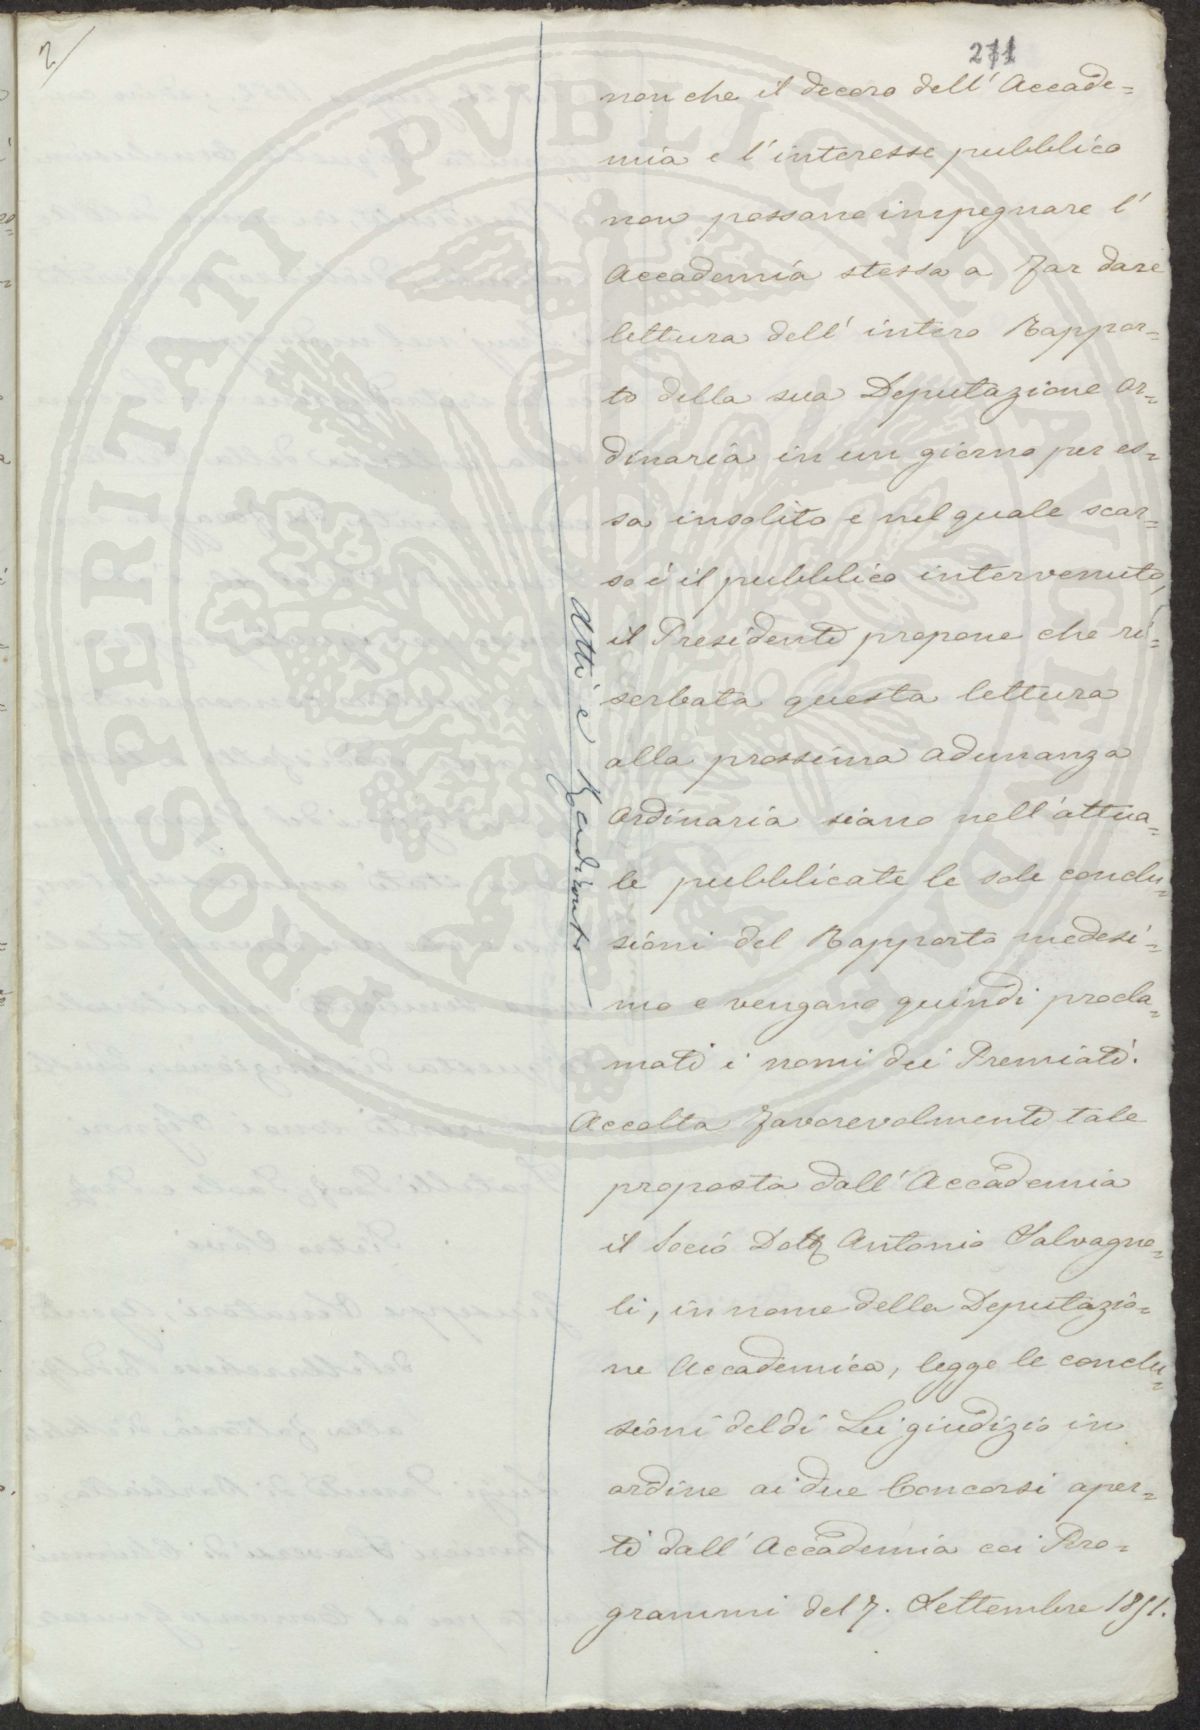 2/
271
non che il decoro dell' Accade=
mia e l'interesse pubblico
non possano impegnare l'
Accademia stessa a far dare
lettura dell' intero Rappor=
to della sua Deputazione Or=
dinaria in un giorno per es=
sa insolito e nel quale scar=
so è il pubblico intervenuto,
il Presidente propone che ri=
serbata questa lettura
alla prossima adunanza
Ordinaria siano nell'attua=
le pubblicate le sole conclu=
sioni del Rapporto medesi=
mo e vengano quindi procla=
mati i nomi dei Premiati.
Accolta favorevolmente tale
proposta dall' Accademia
il Socio Dott Antonio Salvagno=
li, in nome della Deputazio=
ne Accademica, legge le conclu=
sioni del di Lei giudizio in
ordine ai due Concorsi aper=
ti dall' Accademia coi Pro=
grammi del 7. Settembre 1851.
Atti e Rendiconto
PROSPERITATI PUBLICAE AUGENDAE